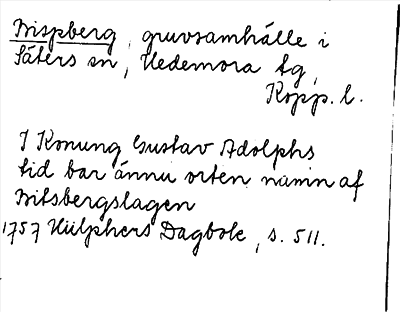 Bispberg, gruvsamhälle i
Säters sn, Hedemora tg,
Kopp. l.
I Konung Gustav Adolphs
tid bar ännu orten namn af
Bitsbergslagen
1757 Hülphers Dagbok, s. 511.